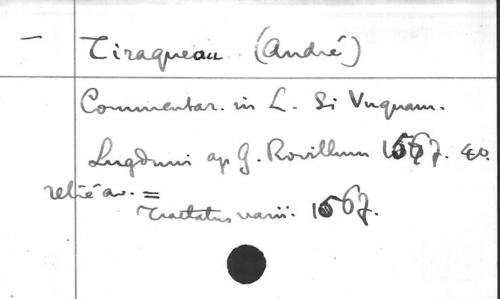 — Tiraqueau (André)
Commentar. in L. Si Vnquam.
Lugduni ap G. Rovillium 1567. 4o.
relié av. =
Tractatus varii. 1567.